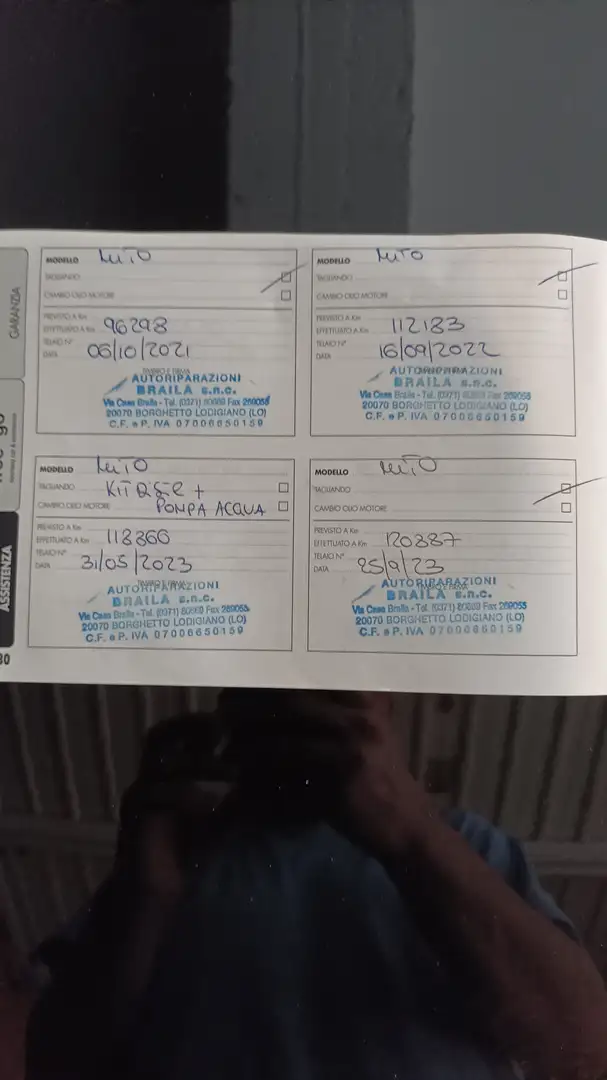 GARANZIA
ASSISTENZA
30
MODELLO MITO
TAGLIANDO
CAMBIO OLIO MOTORE
PREVISTO A Km
EFFETTUATO A Km 96298
TELAIO N°
DATA 06/10/2021
TIMBRO E FIRMA
AUTORIPARAZIONI
BRAILA s.n.c.
Via Cesa Braila - Tel. (0371) 80869 Fax 269058
20070 BORGHETTO LODIGIANO (LO)
C.F. e P. IVA 07006650159
MODELLO MITO
TAGLIANDO
CAMBIO OLIO MOTORE
PREVISTO A Km
EFFETTUATO A Km 112183
TELAIO N°
DATA 16/09/2022
AUTORIPARAZIONI
BRAILA s.n.c.
20070 BORGHETTO LODIGIANO (LO)
C.F. e P. IVA 07006650159
MODELLO MITO
TAGLIANDO KIT DISTR +
CAMBIO OLIO MOTORE POMPA ACQUA
PREVISTO A Km
EFFETTUATO A Km 118366
TELAIO N°
DATA 31/05/2023
AUTORIPARAZIONI
BRAILA s.n.c.
20070 BORGHETTO LODIGIANO (LO)
C.F. e P. IVA 07006650159
MODELLO MITO
TAGLIANDO
CAMBIO OLIO MOTORE
PREVISTO A Km
EFFETTUATO A Km 120887
TELAIO N°
DATA 25/9/23
AUTORIPARAZIONI
BRAILA s.n.c.
20070 BORGHETTO LODIGIANO (LO)
C.F. e P. IVA 07006650159